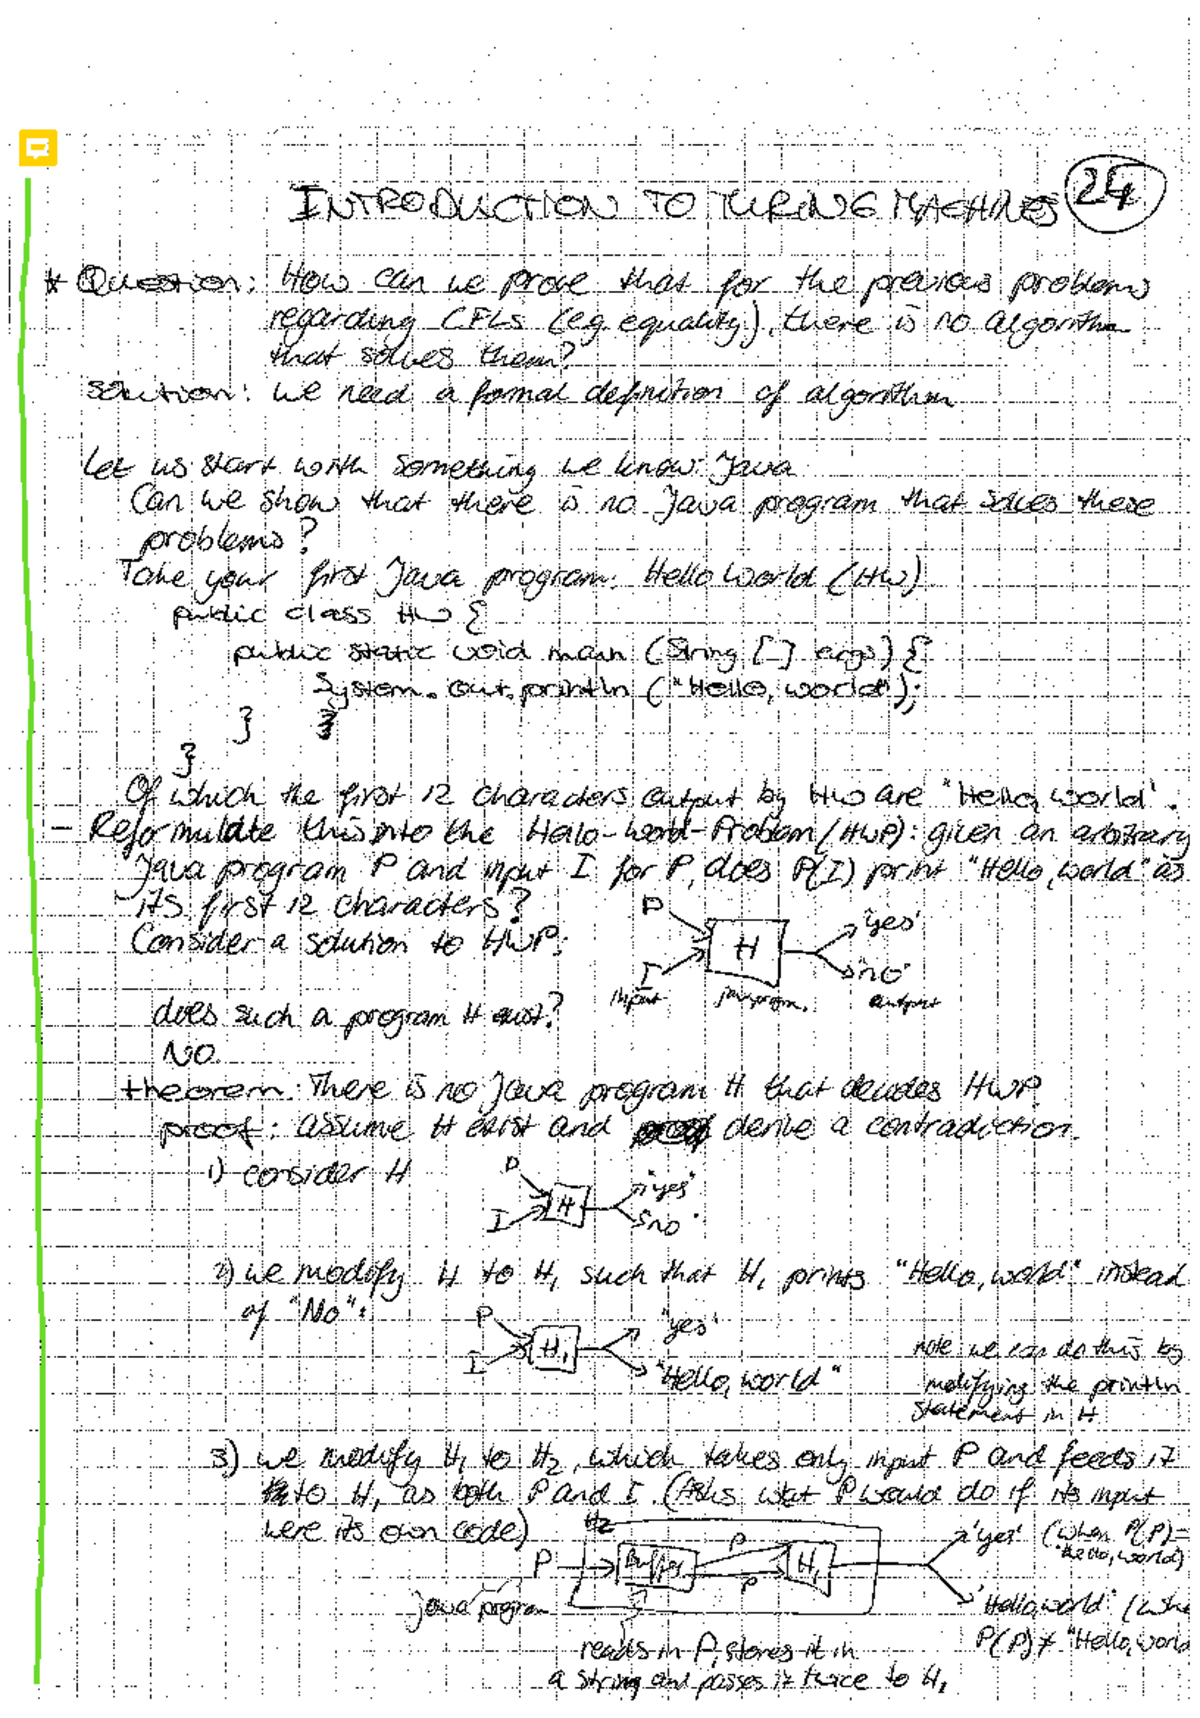 INTRODUCTION TO TURING MACHINES 24
* Question: How can we prove that for the previous problems
regarding CFLs (e.g. equality), there is no algorithm
that solves them?
solution: we need a formal definition of algorithm
Let us start with something we know: Java
Can we show that there is no Java program that solves these
problems?
Take your first Java program: Hello World (HW)
public class HW {
public static void main (String [] args) {
System.out.println ("Hello, world");
}
}
Of which the first 12 characters output by HW are "Hello, world".
- Reformulate this into the Hello-World-Problem (HWP): given an arbitrary
Java program P and input I for P, does P(I) print "Hello, world" as
its first 12 characters?
Consider a solution to HWP:
P
I
H
"yes"
"no"
input
output
does such a program H exist?
NO.
theorem: There is no Java program H that decides HWP.
proof: assume H exist and derive a contradiction.
1) consider H
P
I
H
"yes"
no
2) we modify H to H₁ such that H₁ prints "Hello, world" instead
of "No":
P
I
H₁
"yes"
"Hello, world"
note we can do this by
modifying the println
statement in H
3) we modify H₁ to H₂, which takes only input P and feeds it
to H₁ as both P and I. (Asks what P would do if its input
were its own code)
H₂
P
Buffer
P
P
H₁
'yes' (when P(P)=
"Hello, world)
"Hello world" (whe
P(P) ≠ "Hello, world
java program
reads in P, stores it in
a string and passes it twice to H₁